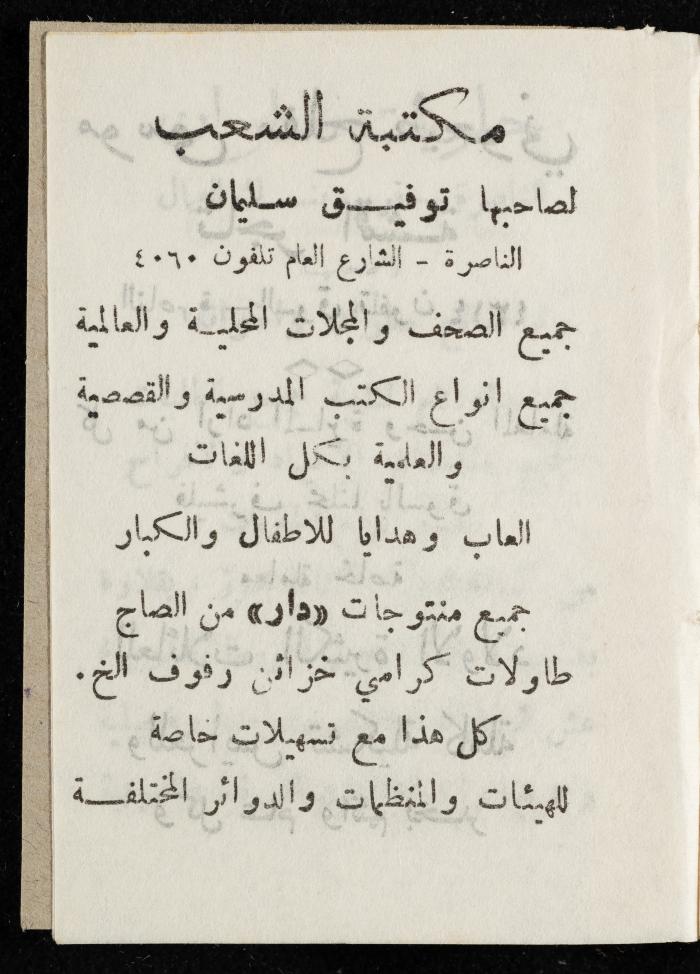 مكتبة الشعب
لصاحبها توفيـــق سـليمان
الناصرة - الشارع العام تلفون ٤٠٦٠
جميع الصحف والمجلات المحليـة والعالمية
جميع انواع الكتب المدرسية والقصصية
والعلمية بكل اللغات
العاب وهدايا للاطفال والكبار
جميع منتوجات «دار» من الصاج
طاولات كراسي خزائن رفوف الخ.
كل هذا مع تسهيلات خاصة
للهيئات والمنظمات والدوائر المختلفــة